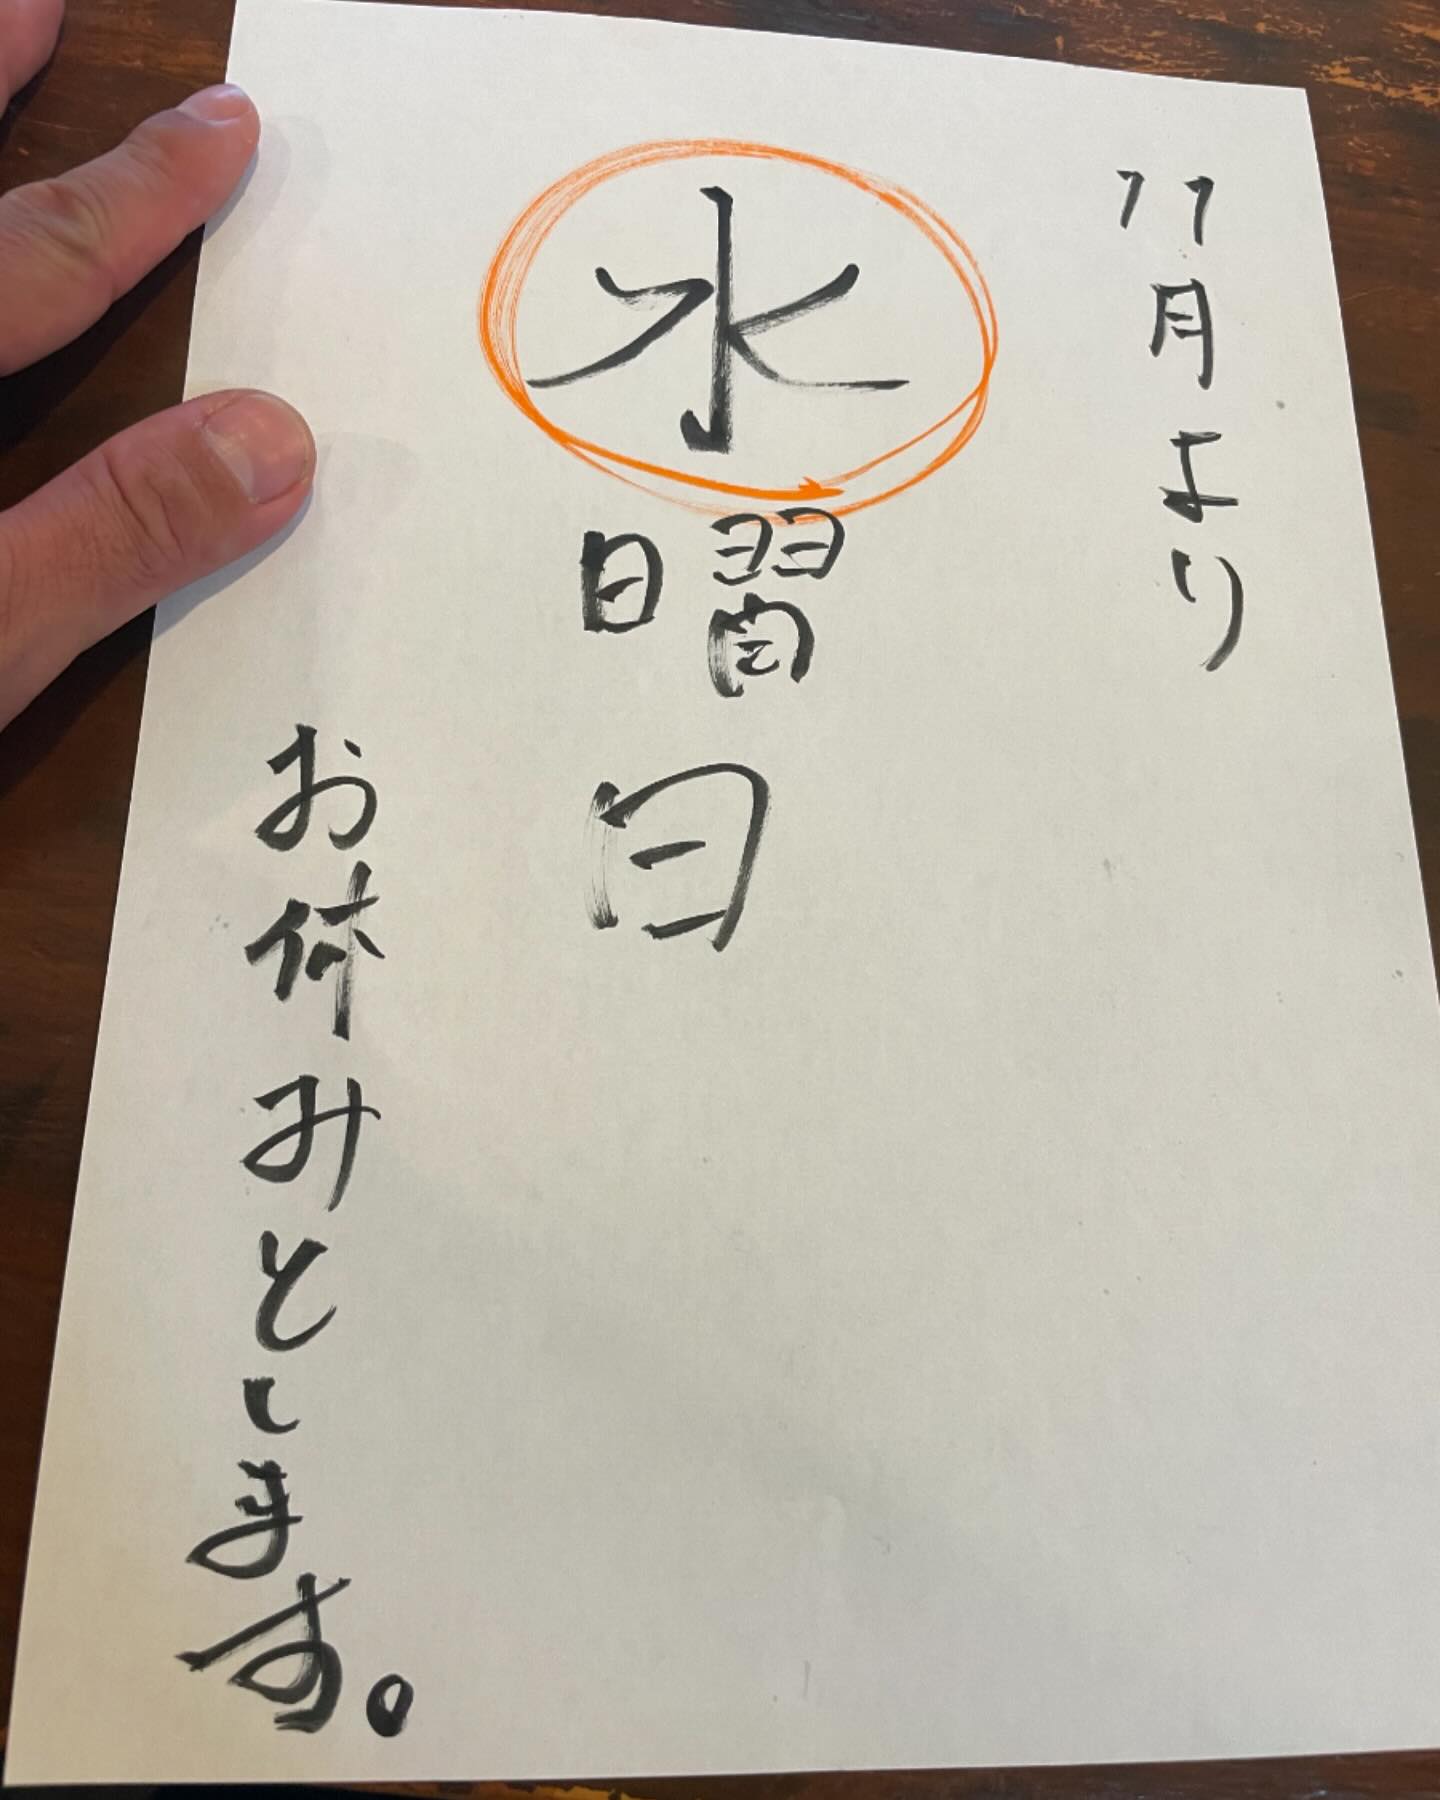 11月より
水曜日
お休みとします。